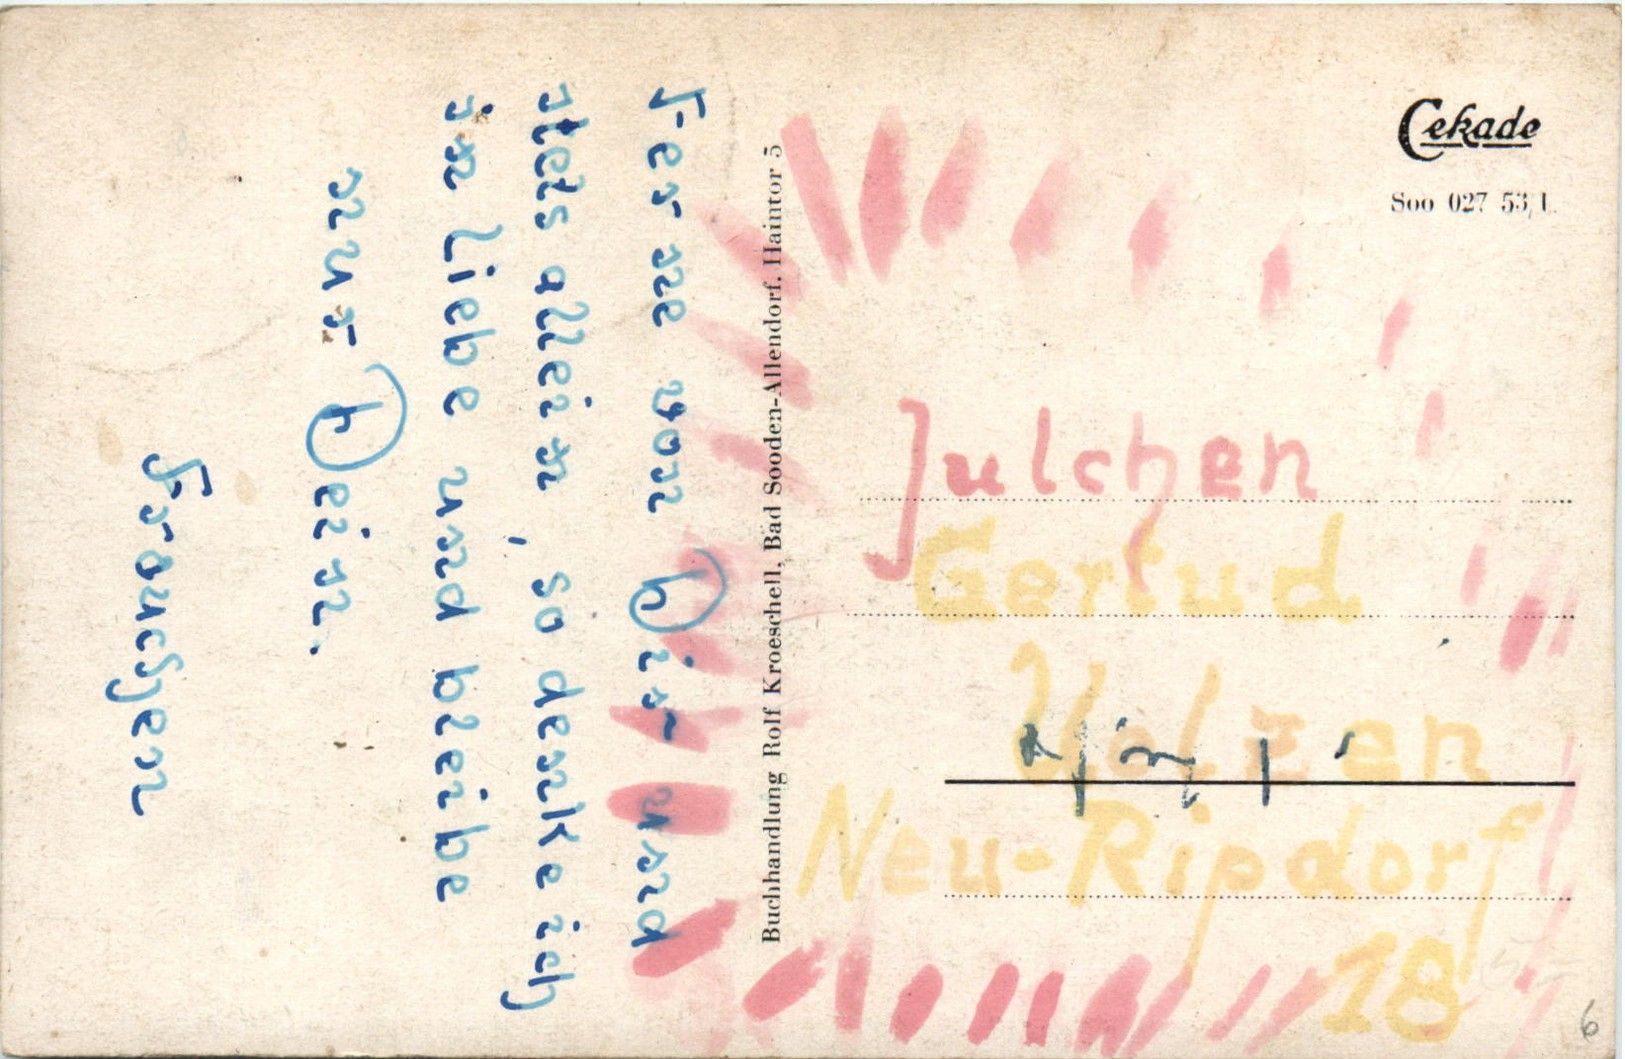 Ferne von Dir und
stets allein, so denke ich
in Liebe und bleibe
nur Dein.
Frauchen
Buchhandlung Rolf Kroeschell, Bad Sooden-Allendorf, Haintor 5
Cekade
Soo 027 53/1.
Julchen
Gertud
Uelzen
Neu-Ripdorf
18
6